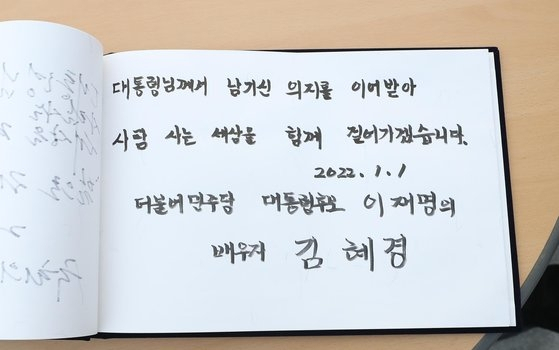 대통령님께서 남기신 의지를 이어받아
사람 사는 세상을 함께 걸어가겠습니다.
2022. 1. 1
더불어민주당 대통령후보 이재명의
배우자 김혜경